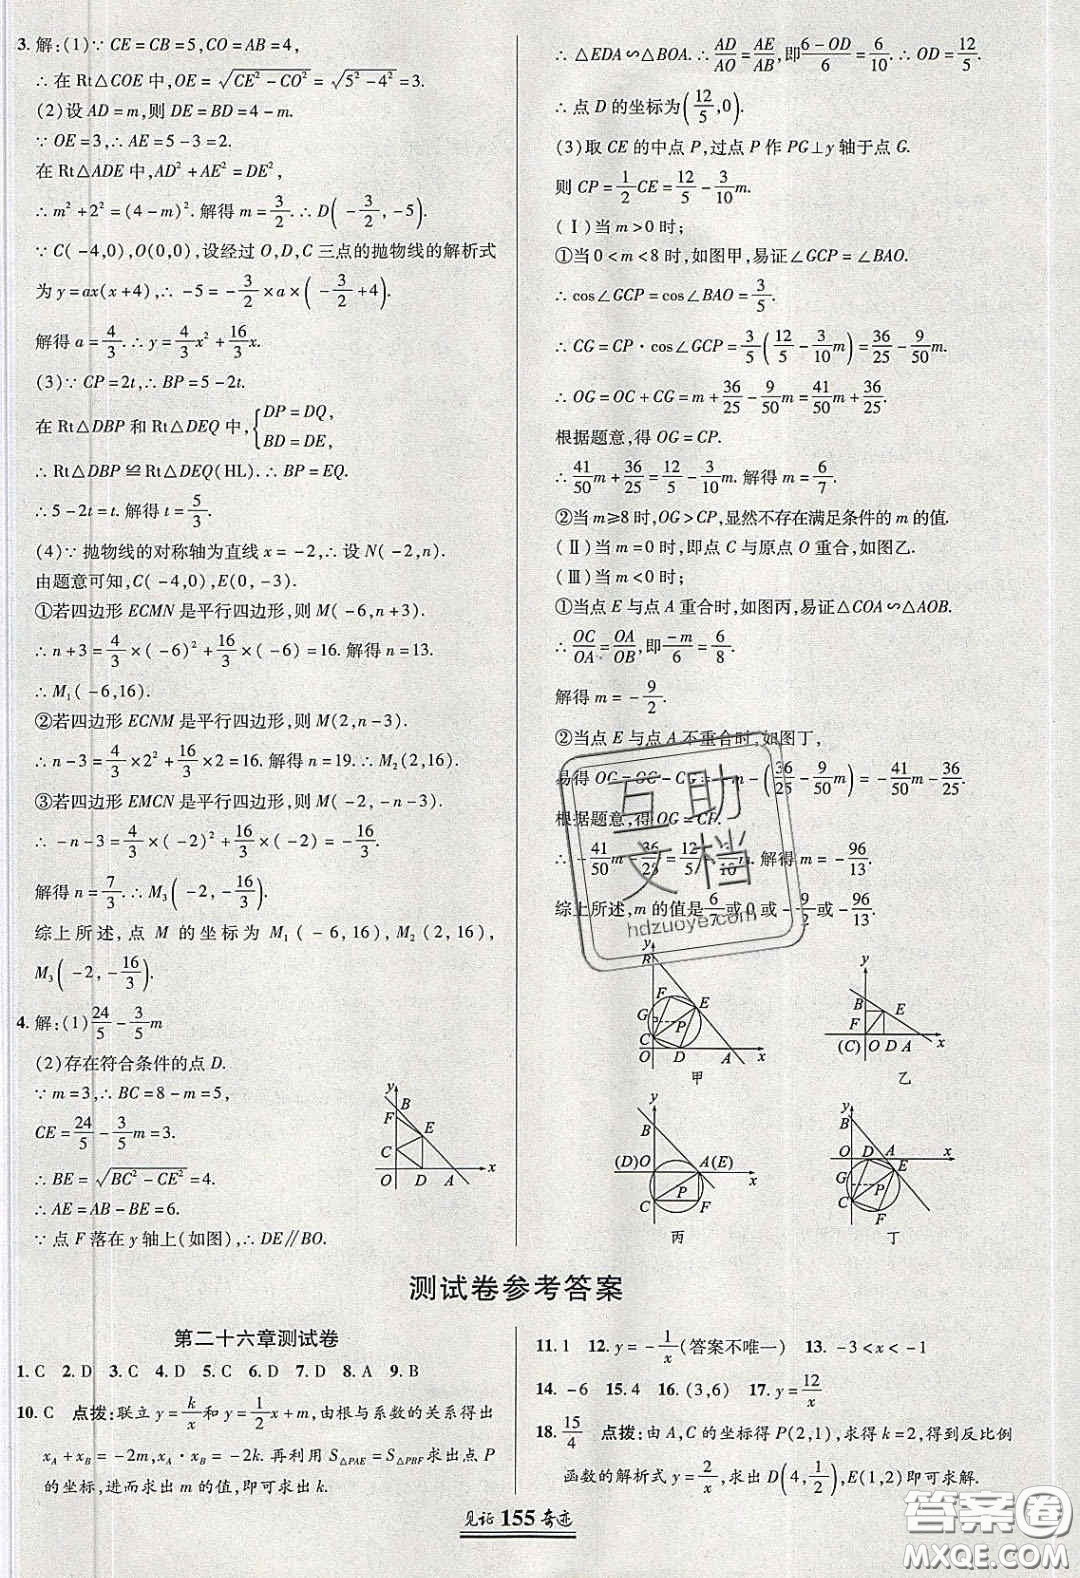 3. 解:(1)∵ CE=CB=5,CO=AB=4,
∴ 在 Rt△COE 中,OE=√(CE²-CO²)=√(5²-4²)=3.
(2)设 AD=m,则 DE=BD=4-m.
∵ OE=3,∴ AE=5-3=2.
在 Rt△ADE 中,AD²+AE²=DE²,
∴ m²+2²=(4-m)². 解得 m=3/2. ∴ D(-3/2,-5).
∵ C(-4,0),O(0,0),设经过 O,D,C 三点的抛物线的解析式
为 y=ax(x+4),∴ -5=-3/2×a×(-3/2+4).
解得 a=4/3. ∴ y=4/3x²+16/3x.
(3)∵ CP=2t,∴ BP=5-2t.
在 Rt△DBP 和 Rt△DEQ 中,{DP=DQ,
BD=DE,
∴ Rt△DBP≌Rt△DEQ(HL). ∴ BP=EQ.
∴ 5-2t=t. 解得 t=5/3.
(4)∵ 抛物线的对称轴为直线 x=-2,∴ 设 N(-2,n).
由题意可知,C(-4,0),E(0,-3).
①若四边形 ECMN 是平行四边形,则 M(-6,n+3).
∴ n+3=4/3×(-6)²+16/3×(-6)=16. 解得 n=13.
∴ M₁(-6,16).
②若四边形 ECNM 是平行四边形,则 M(2,n-3).
∴ n-3=4/3×2²+16/3×2=16. 解得 n=19. ∴ M₂(2,16).
③若四边形 EMCN 是平行四边形,则 M(-2,-n-3).
∴ -n-3=4/3×(-2)²+16/3×(-2)=-16/3.
解得 n=7/3. ∴ M₃(-2,-16/3).
综上所述,点 M 的坐标为 M₁(-6,16),M₂(2,16),
M₃(-2,-16/3).
4. 解:(1)24/5-3/5m
(2)存在符合条件的点 D.
∵ m=3,∴ BC=8-m=5,
CE=24/5-3/5m=3.
∴ BE=√(BC²-CE²)=4.
∴ AE=AB-BE=6.
∵ 点 F 落在 y 轴上(如图),∴ DE∥BO.
y
B
F
E
C
O D A x
∴ △EDA∽△BOA. ∴ AD/AO=AE/AB,即(6-OD)/6=6/10. ∴ OD=12/5.
∴ 点 D 的坐标为(12/5,0).
(3)取 CE 的中点 P,过点 P 作 PG⊥y 轴于点 G.
则 CP=1/2CE=12/5-3/10m.
(Ⅰ)当 m>0 时;
①当 0<m<8 时,如图甲,易证∠GCP=∠BAO.
∴ cos∠GCP=cos∠BAO=3/5.
∴ CG=CP·cos∠GCP=3/5(12/5-3/10m)=36/25-9/50m.
∴ OG=OC+CG=m+36/25-9/50m=41/50m+36/25.
根据题意,得 OG=CP.
∴ 41/50m+36/25=12/5-3/10m. 解得 m=6/7.
②当 m≥8 时,OG>CP,显然不存在满足条件的 m 的值.
(Ⅱ)当 m=0 时,即点 C 与原点 O 重合,如图乙.
(Ⅲ)当 m<0 时;
①当点 E 与点 A 重合时,如图丙,易证△COA∽△AOB.
∴ OC/OA=OA/OB,即-m/6=6/8.
解得 m=-9/2.
②当点 E 与点 A 不重合时,如图丁,
易得 OG=OC-CG=-m-(36/25-9/50m)=-41/50m-36/25.
根据题意,得 OG=CP.
∴ -41/50m-36/25=12/5-3/10m. 解得 m=-96/13.
综上所述,m 的值是6/7或 0 或-9/2或-96/13.
互助
文档
hdzuoye.com
y
B
F E
G P
C
O D A x
甲
y
B E
F
(C) O D A x
乙
y
B
(D) O A(E) x
P
C F
丙
y
B
O D A x
E
G P
C F
丁
测试卷参考答案
第二十六章测试卷
1. C 2. D 3. C 4. D 5. C 6. D 7. D 8. A 9. B
10. C 点拨:联立 y=k/x和 y=1/2x+m,由根与系数的关系得出
x_A+x_B=-2m,x_A·x_B=-2k. 再利用 S△PAE=S△PBF求出点 P
的坐标,进而求出 m 的值,即可求出 k.
11. 1 12. y=-1/x(答案不唯一) 13. -3<x<-1
14. -6 15. 4 16. (3,6) 17. y=12/x
18. 15/4 点拨:由 A,C 的坐标得 P(2,1),求得 k=2,得到反比例
函数的解析式 y=2/x,求出 D(4,1/2),E(1,2)即可求解.
见证 155 奇迹
答案圈
MXQE.COM